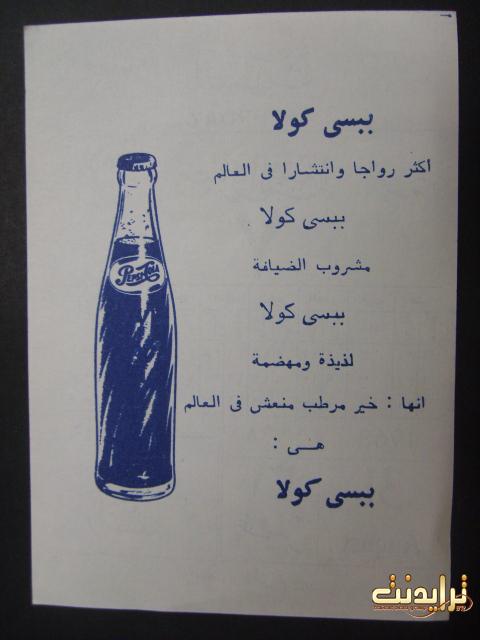 ببسى كولا
اكثر رواجا وانتشارا فى العالم
ببسى كولا
مشروب الضيافة
ببسى كولا
لذيذة ومهضمة
انها : خير مرطب منعش فى العالم
هــى :
ببسى كولا
PEPSI-COLA
ترايدنت